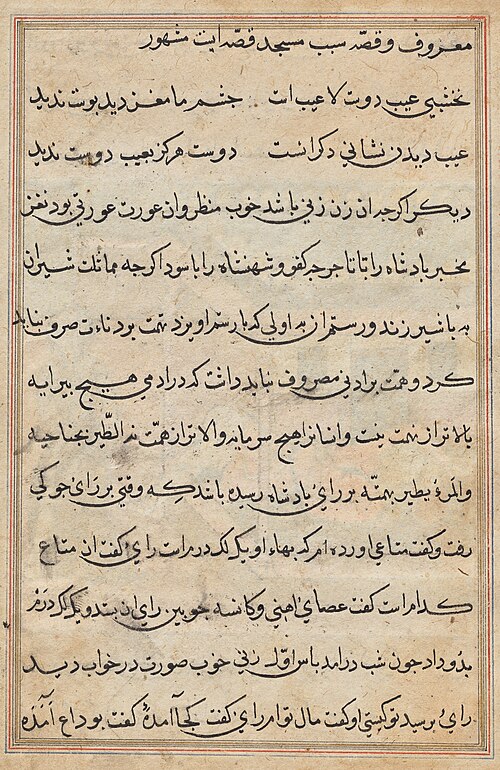 معروف و قصّه سبب مسجد قصّه ایت مشهور
نخشبی عیب دوت لا عیب است جشم ما مغز دید بوست ندید
عیب دیدن نشانی دکراست دوست هرکز بعیب دوست ندید
دیکر اکرجه ان زن زنی باشد خوب منظر وان عورت عورتی بود نغز
مخبر بادشاه را تا تاجر جه کفو و شهنشاه را با سوداکر جه مماثلت شیران
به با شیر زند و رستم ان به اولی که بارسد او یزد تهمت بود ناءت صرف نباید
کرد و همّت برادنی مصروف نباید داشت که در ادمی هیچ بیرایه
بالاتر از همت نیست و انسانرا هیچ سرمایه والاتر از همّت نه الطّیر بجناحیه
والمرءُ یطیر بهمّته بر رایُ بادشاه رسیده باشد که وقتی بر رایُ جوکی
رفت و کفت متاعی اورده ام که بهاء او یک لک درم است رایُ کفت ان متاع
کدام است کفت عصایُ اهنی و کاسه جوبین رایُ ان بستد و یک لک درم
بدو داد جون شب درامد باس اوّل زنی خوب صورت در خواب دید
رایُ برسید تو کیستی او کفت مال توام رایُ کفت کجا آمدهٔ کفت بوداع آمده